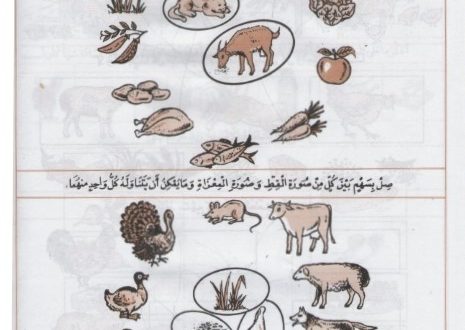 صِلْ بِسَهْمٍ بَيْنَ كُلٍّ مِنْ صُورَةِ الْقِطِّ وَصُورَةِ الْمِعْزَاةِ وَمَا يُمْكِنُ أَنْ يَتَنَاوَلَهُ كُلُّ وَاحِدٍ مِنْهُمَا.